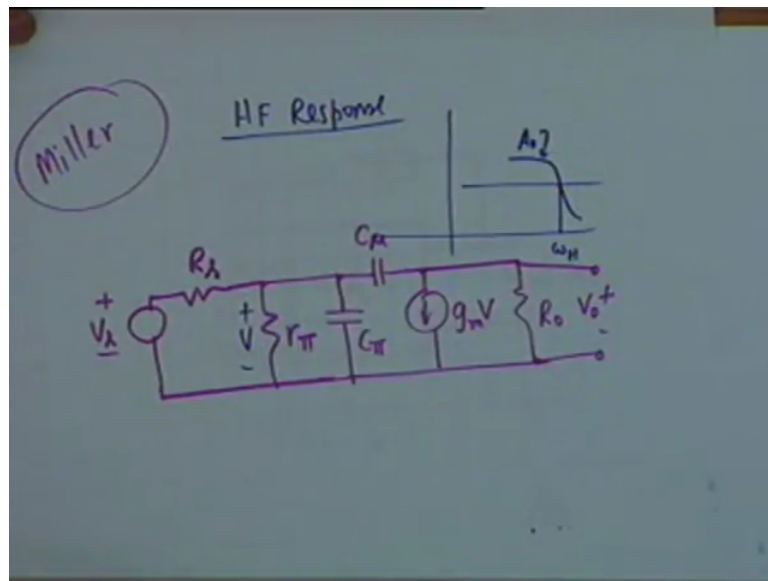 Miller
HF Response
A₀
ω_H
Cμ
Rs
+
Vs
+
V
-
rπ
Cπ
gmV
Ro
Vo
+
-